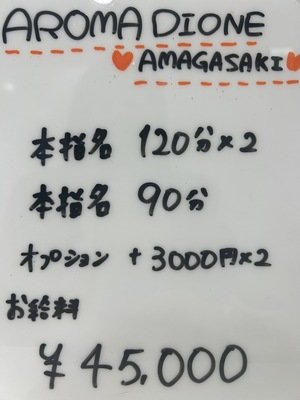 AROMA DIONE
AMAGASAKI
本指名 120分×2
本指名 90分
オプション +3000円×2
お給料
¥45,000